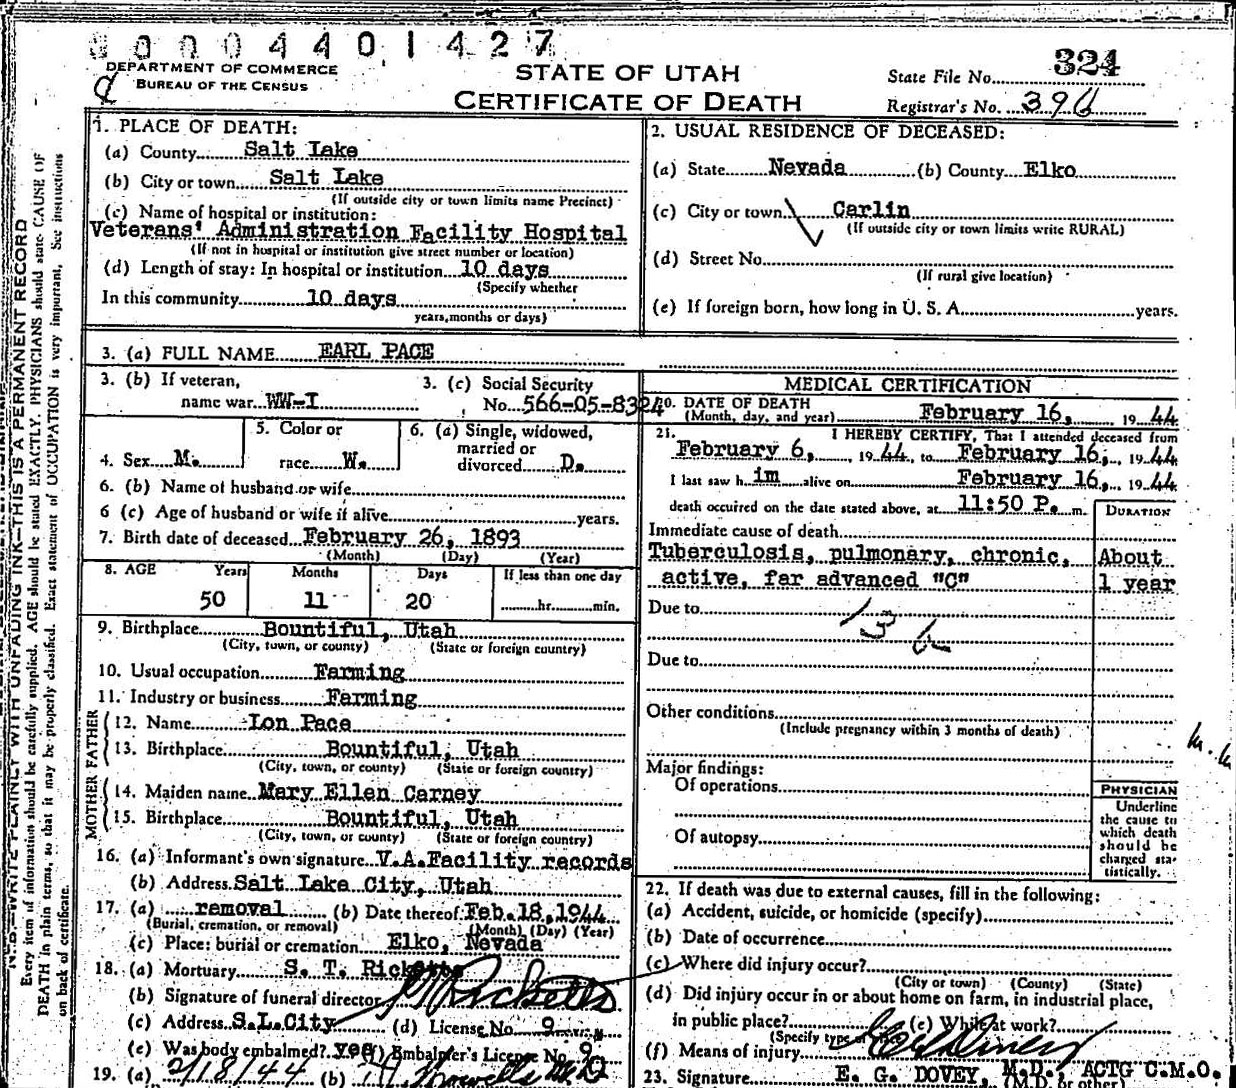 00004401427
DEPARTMENT OF COMMERCE
BUREAU OF THE CENSUS
STATE OF UTAH
CERTIFICATE OF DEATH
State File No. 324
Registrar's No. 396
1. PLACE OF DEATH:
(a) County Salt Lake
(b) City or town Salt Lake
(If outside city or town limits name Precinct)
(c) Name of hospital or institution:
Veterans' Administration Facility Hospital
(If not in hospital or institution give street number or location)
(d) Length of stay: In hospital or institution 10 days
(Specify whether
In this community 10 days
years, months or days)
2. USUAL RESIDENCE OF DECEASED:
(a) State Nevada (b) County Elko
(c) City or town Carlin
(If outside city or town limits write RURAL)
(d) Street No.
(If rural give location)
(e) If foreign born, how long in U. S. A. years.
3. (a) FULL NAME EARL PACE
3. (b) If veteran,
name war WW-I
3. (c) Social Security
No. 566-05-8324
4. Sex M.
5. Color or
race W.
6. (a) Single, widowed,
married or
divorced D.
6. (b) Name of husband or wife
6 (c) Age of husband or wife if alive years.
7. Birth date of deceased February 26, 1893
(Month) (Day) (Year)
8. AGE Years Months Days If less than one day
50 11 20 hr. min.
9. Birthplace Bountiful, Utah
(City, town, or county) (State or foreign country)
10. Usual occupation Farming
11. Industry or business Farming
FATHER
12. Name Lon Pace
13. Birthplace Bountiful, Utah
(City, town, or county) (State or foreign country)
MOTHER
14. Maiden name Mary Ellen Carney
15. Birthplace Bountiful, Utah
(City, town, or county) (State or foreign country)
16. (a) Informant's own signature V.A.Facility records
(b) Address Salt Lake City, Utah
17. (a) removal (b) Date thereof Feb.18,1944
(Burial, cremation, or removal) (Month) (Day) (Year)
(c) Place: burial or cremation Elko, Nevada
18. (a) Mortuary S. T. Ricketts
(b) Signature of funeral director Ricketts
(c) Address S.L.City (d) License No. 9
(e) Was body embalmed? yes (f) Embalmer's License No. 9
19. (a) 2/18/44 (b)
MEDICAL CERTIFICATION
20. DATE OF DEATH
(Month, day, and year) February 16, 1944
21. I HEREBY CERTIFY, That I attended deceased from
February 6, 1944, to February 16, 1944
I last saw him alive on February 16, 1944
death occurred on the date stated above, at 11:50 P. m.
DURATION
Immediate cause of death
Tuberculosis, pulmonary, chronic, About
active, far advanced "C" 1 year
Due to
13 b
Due to
Other conditions
(Include pregnancy within 3 months of death)
Major findings:
Of operations
Of autopsy
PHYSICIAN
Underline
the cause to
which death
should be
charged sta-
tistically.
22. If death was due to external causes, fill in the following:
(a) Accident, suicide, or homicide (specify)
(b) Date of occurrence
(c) Where did injury occur?
(City or town) (County) (State)
(d) Did injury occur in or about home on farm, in industrial place,
in public place? (e) While at work?
(Specify type of
(f) Means of injury
23. Signature E. G. DOVEY, M.D., ACTG C.M.O.
(M.D. or other)
N.B.—WRITE PLAINLY WITH UNFADING INK—THIS IS A PERMANENT RECORD
Every item of information should be carefully supplied. AGE should be stated EXACTLY. PHYSICIANS should state CAUSE OF
DEATH in plain terms, so that it may be properly classified. Exact statement of OCCUPATION is very important. See instructions
on back of certificate.